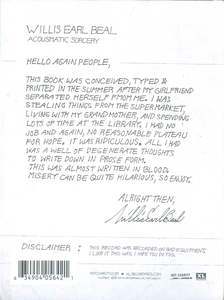 WILLIS EARL BEAL
ACOUSMATIC SORCERY
HELLO AGAIN PEOPLE,
THIS BOOK WAS CONCEIVED, TYPED &
PRINTED IN THE SUMMER AFTER MY GIRLFRIEND
SEPARATED HERSELF FROM ME. I WAS
STEALING THINGS FROM THE SUPERMARKET,
LIVING WITH MY GRANDMOTHER, AND SPENDING
LOTS OF TIME AT THE LIBRARY. I HAD NO
JOB AND AGAIN, NO REASONABLE PLATEAU
FOR HOPE. IT WAS RIDICULOUS. ALL I HAD
WAS A WELL OF DEGENERATE THOUGHTS
TO WRITE DOWN IN PROSE FORM.
THIS WAS ALMOST WRITTEN IN BLOOD.
MISERY CAN BE QUITE HILARIOUS, SO ENJOY.
ALRIGHT THEN,
Willis Earl Beal
DISCLAIMER :
THIS RECORD WAS RECORDED ON BAD EQUIPMENT.
I LIKE IT THIS WAY. I HOPE YOU DO TOO.
6 34904 05642 1
XL